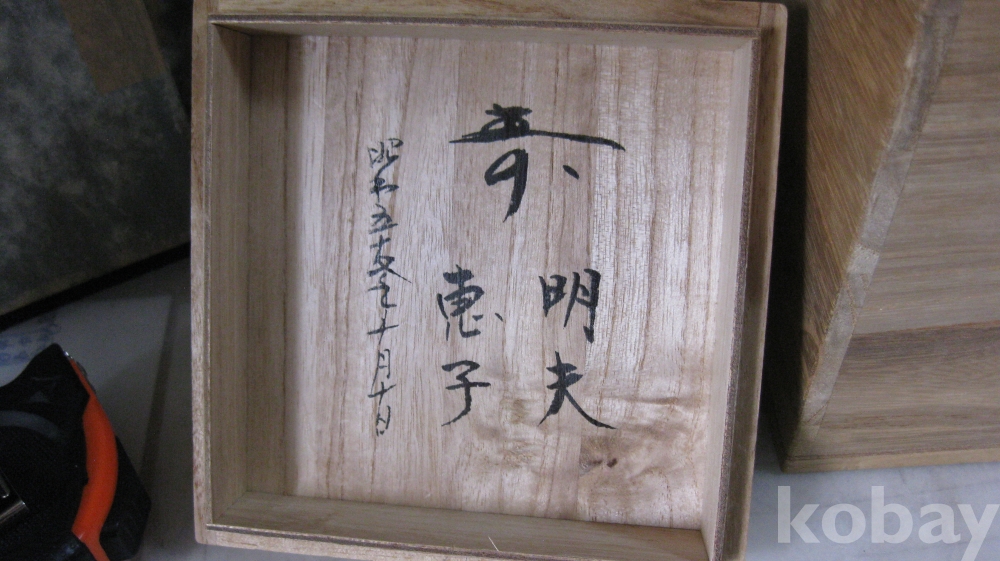 寿
明夫
恵子
昭和五十年十月十日